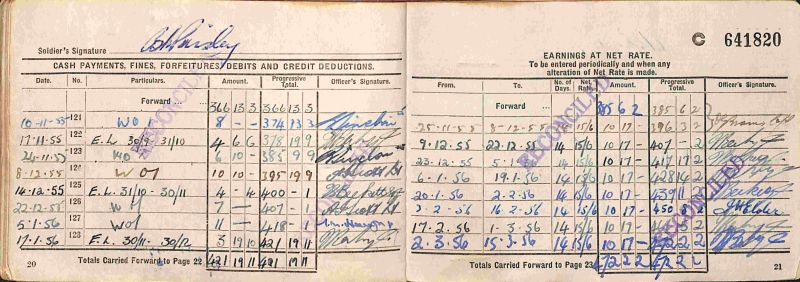 Soldier's Signature
CASH PAYMENTS, FINES, FORFEITURES, DEBITS AND CREDIT DEDUCTIONS.
Date. No. Particulars. Amount. Progressive Total. Officer's Signature.
Forward ... 366 13 3 366 13 3
10-11-55 121 WO1 8 — - 374 13 3
17-11-55 122 E.L 30/9 - 31/10 4 6 6 378 19 9
24-11-55 123 WO1 6 10 - 385 9 9
8-12-55 124 WO1 10 10 - 395 19 9
14-12-55 125 E.L. 31/10 - 30/11 4 - 4 400 - 1
22-12-55 126 WO1 7 — 407 - 1
5-1-56 127 WO1 11 — 418 - 1
17-1-56 128 E.L. 30/11 - 30/12 3 19 10 421 19 11
Totals Carried Forward to Page 22 421 19 11 421 19 11
20
RECONCILED
C 641820
EARNINGS AT NET RATE.
To be entered periodically and when any
alteration of Net Rate is made.
From. To. No. of Days. Net Rate. Amount. Progressive Total. Officer's Signature.
Forward ... 385 6 2 385 6 2
25-11-55 8-12-55 14 15/6 10 17 - 396 3 2
9-12-55 22-12-55 14 15/6 10 17 - 407 - 2
23-12-55 5-1-56 14 15/6 10 17 - 417 17 2
6-1-56 19-1-56 14 15/6 10 17 - 428 14 2
20-1-56 2-2-56 14 15/6 10 17 - 439 11 2
3-2-56 16-2-56 14 15/6 10 17 - 450 8 2
17-2-56 1-3-56 14 15/6 10 17 - 461 5 2
2-3-56 15-3-56 14 15/6 10 17 - 472 2 2
Totals Carried Forward to Page 23 472 2 2 472 2 2
21
RECONCILED